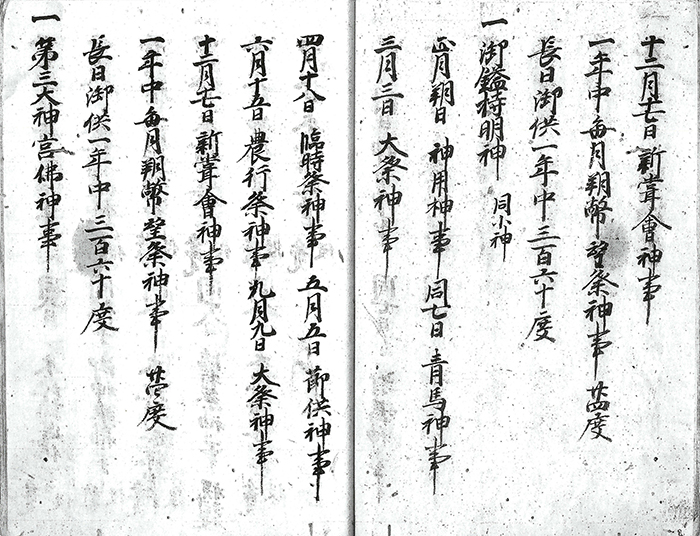 十二月七日 新嘗會神事
一年中毎月朔幣望祭神事 廿四度
長日御供一年中三百六十度
一 御鎰持明神 同小神
正月朔日 神用神事 同七日 青馬神事
三月三日 大祭神事
四月十八日 臨時祭神事 五月五日 節供神事
六月十五日 農行祭神事 九月九日 大祭神事
十二月七日 新嘗會神事
一年中毎月朔幣望祭神事 廿四度
長日御供一年中三百六十度
一 第三大神宮佛神事